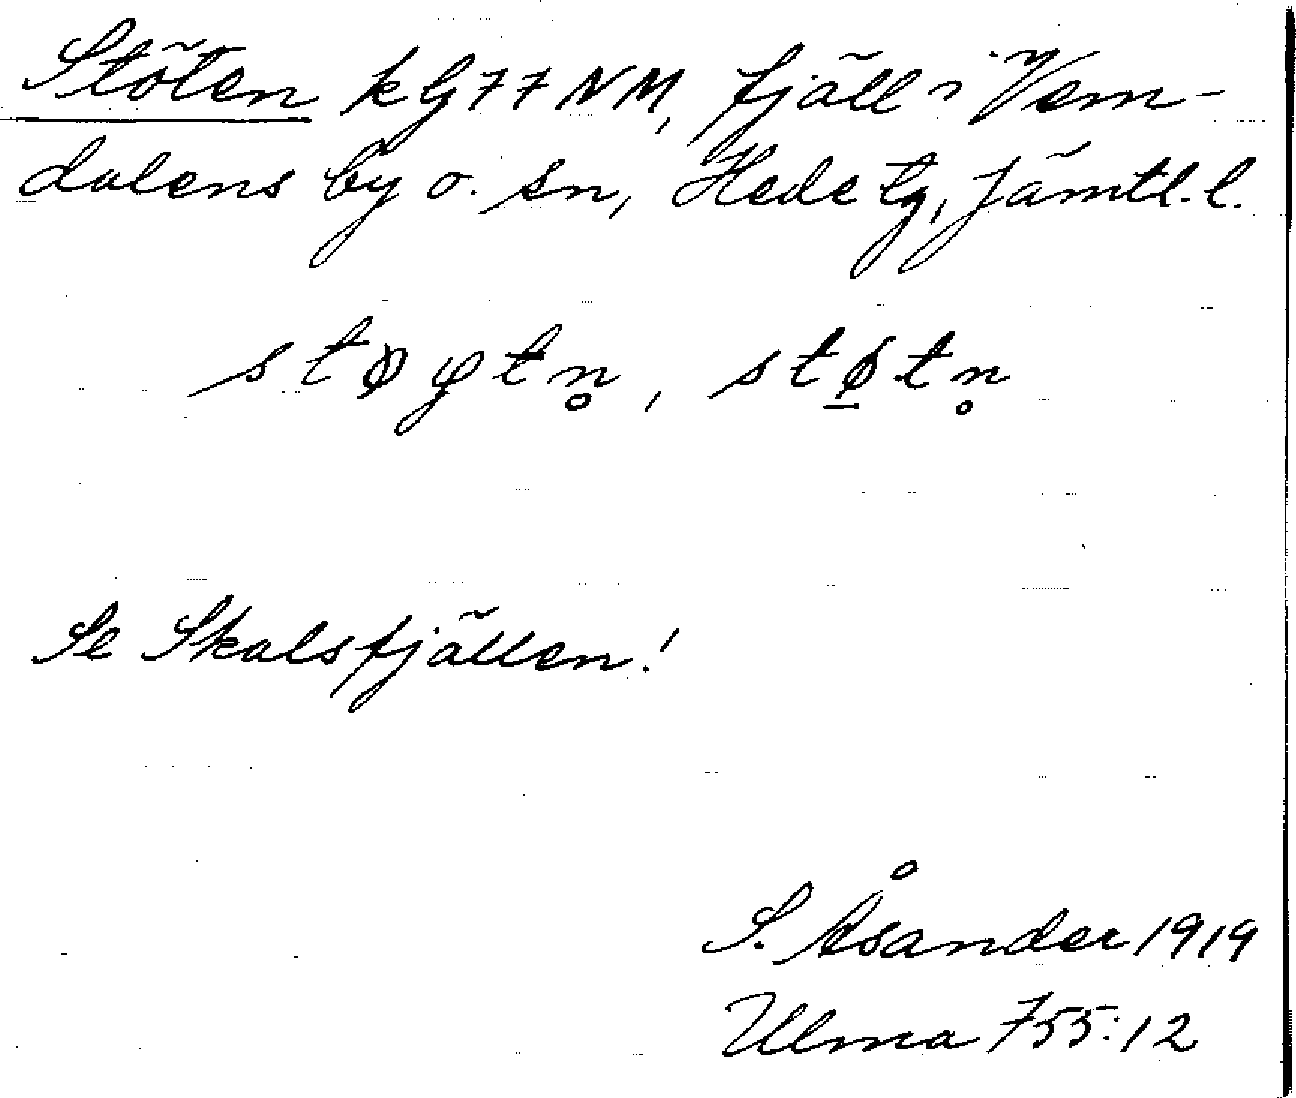 Stöten kG77NM, fjäll i Vem-
dalens by o. sn, Hede tg, Jämtl. l.
støytn̥, stø̲tn̥
Se Skalsfjällen!
S. Åsander 1919
Ulma 755:12